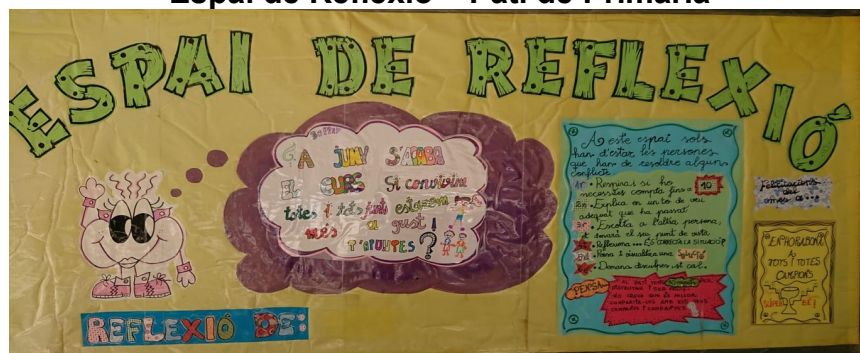 Espai de Reflexió – Pati de Primària
ESPAI DE REFLEXIÓ
A JUNY S'ACABA
EL CURS Si convivim
totes i tots junts estarem
més a gust!
T'APUNTES?
REFLEXIÓ DE:
Aquest espai sols
han d'estar les persones
que han de resoldre algun
conflicte.
1r. Respira i si ho
necessites compta fins a 10
2n. Explica en un to de veu
adequat que ha passat.
3r. Escolta a l'altra persona,
et donarà el seu punt de vista.
Reflexiona... ÉS CORRECTA LA SITUACIÓ?
Pensa i visualitza una
Demana disculpes, si cal.
PENSA
Felicitacions
del
mes a...
ENHORABONA
A
TOTS I TOTES
CAMPIONS